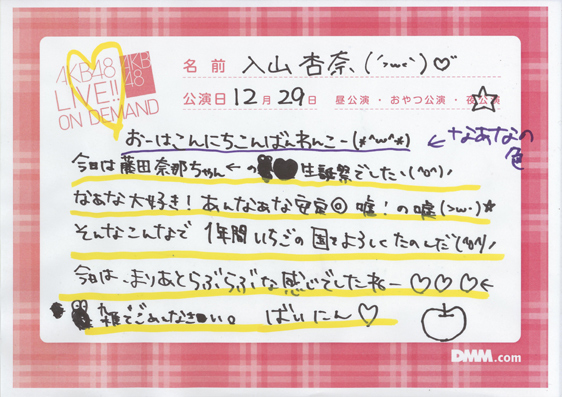 AKB48
LIVE!!
ON DEMAND
AKB
48
名前 入山杏奈(´>ω<`)♡
公演日 12月29日 昼公演・おやつ公演・夜公演
おーはこんにちこんばんわんこー(*^w^*)
←なあなの
色
今日は藤田奈那ちゃん←の 生誕祭でした、(^o^)ノ
なぁな大好き!あんなあな安定◎嘘!の嘘(>ω・)★
そんなこんなで1年間いちごの国でよろしくたのんだ(^o^)ノ
今日は、まりあとらぶらぶな感じでしたねー♡♡♡←
雑でごめんなさい。 ばいにん♡
DMM.com